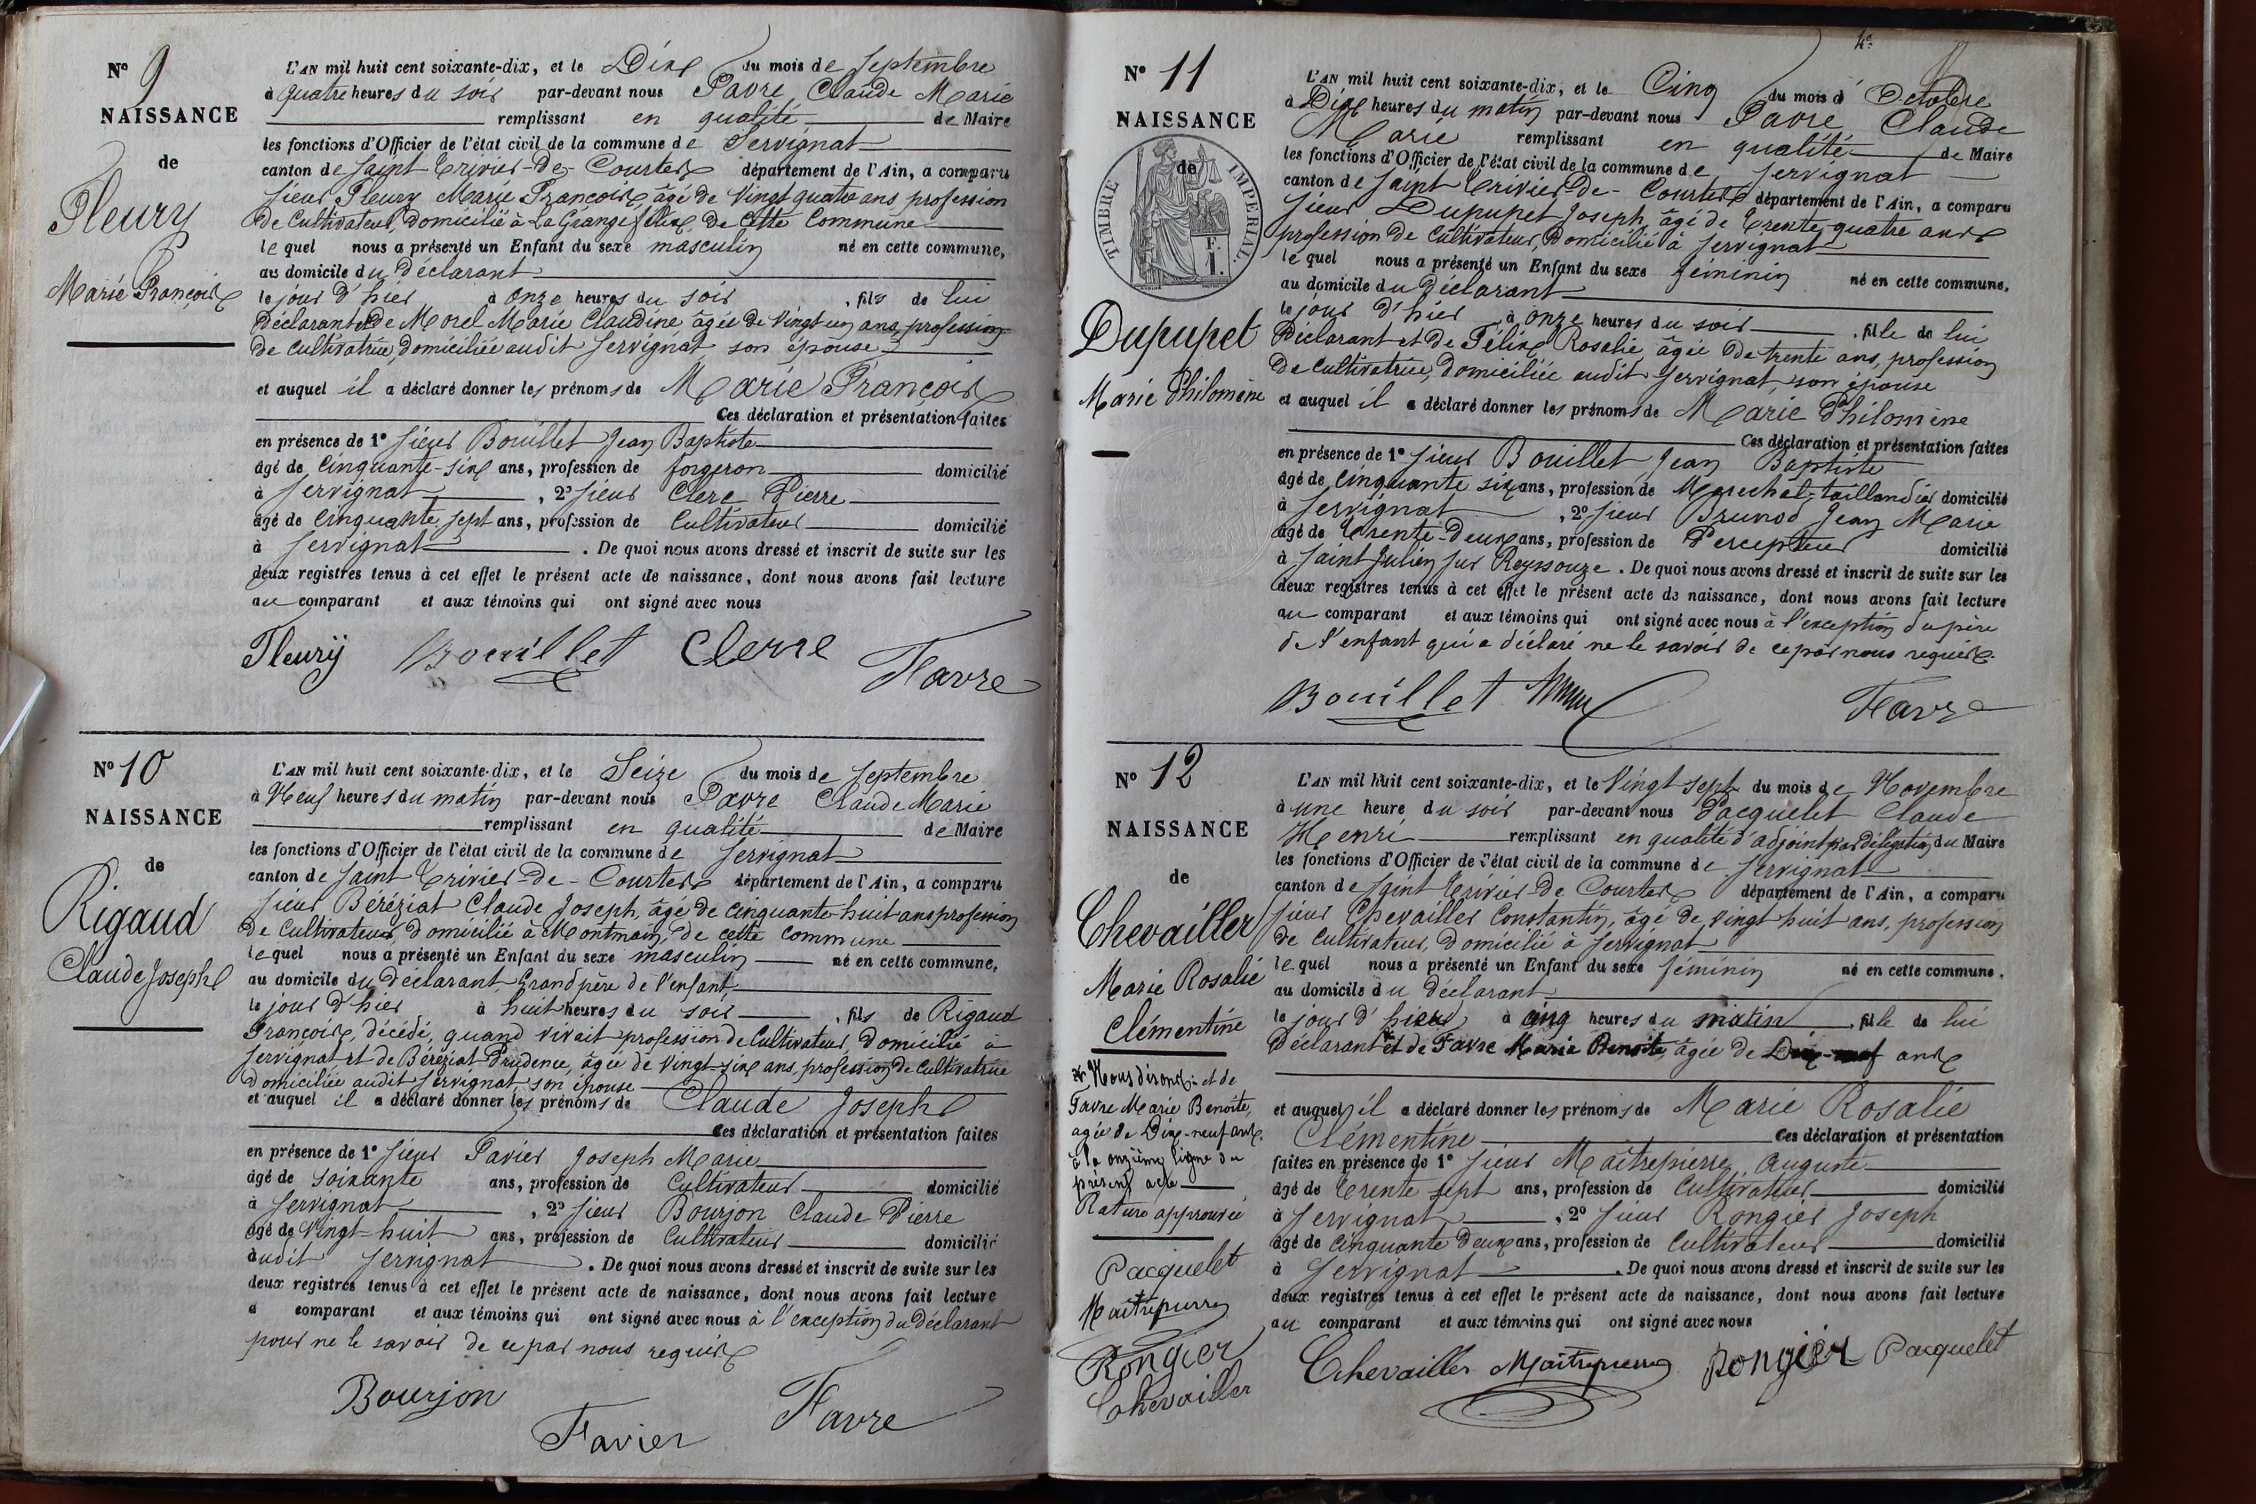 No 9
NAISSANCE
de
Fleury
Marie François
L'AN mil huit cent soixante-dix, et le Dix du mois de Septembre
à quatre heures du soir par-devant nous Favre Claude Marie
remplissant en qualité de Maire
les fonctions d'Officier de l'état civil de la commune de Servignat
canton de Saint Trivier-de-Courtes département de l'Ain, a comparu
sieur Fleury Marie François, âgé de vingt quatre ans profession
de Cultivateur, domicilié à La Grange de cette Commune
le quel nous a présenté un Enfant du sexe masculin né en cette commune,
au domicile du Déclarant
le jour d'hier à onze heures du soir, fils de lui
Déclarant et de Morel Marie Claudine, âgée de vingt un ans, profession
de cultivatrice, domiciliée audit Servignat son épouse
et auquel il a déclaré donner les prénoms de Marie François
Ces déclaration et présentation faites
en présence de 1° sieur Bouillet Jean Baptiste
âgé de Cinquante-six ans, profession de forgeron domicilié
à Servignat, 2° sieur Clerc Pierre
âgé de Cinquante sept ans, profession de Cultivateur domicilié
à Servignat. De quoi nous avons dressé et inscrit de suite sur les
deux registres tenus à cet effet le présent acte de naissance, dont nous avons fait lecture
au comparant et aux témoins qui ont signé avec nous
Fleury Bouillet Clerc Favre
No 10
NAISSANCE
de
Rigaud
Claude Joseph
L'AN mil huit cent soixante-dix, et le Seize du mois de Septembre
à Neuf heures du matin par-devant nous Favre Claude Marie
remplissant en qualité de Maire
les fonctions d'Officier de l'état civil de la commune de Servignat
canton de Saint Trivier-de-Courtes département de l'Ain, a comparu
sieur Béréziat Claude Joseph, âgé de cinquante-huit ans profession
de Cultivateur, domicilié à Montmain, de cette commune
le quel nous a présenté un Enfant du sexe masculin né en cette commune,
au domicile du Déclarant Grand père de l'enfant
le jour d'hier à huit heures du soir, fils de Rigaud
François, décédé, quand vivait profession de Cultivateur, domicilié à
Servignat et de Béréziat Prudence, âgée de vingt-six ans, profession de Cultivatrice
domiciliée audit Servignat, son épouse
et auquel il a déclaré donner les prénoms de Claude Joseph
Ces déclaration et présentation faites
en présence de 1° sieur Favier Joseph Marie
âgé de soixante ans, profession de Cultivateur domicilié
à Servignat, 2° sieur Bourjon Claude Pierre
âgé de vingt-huit ans, profession de Cultivateur domicilié
audit Servignat. De quoi nous avons dressé et inscrit de suite sur les
deux registres tenus à cet effet le présent acte de naissance, dont nous avons fait lecture
a comparant et aux témoins qui ont signé avec nous à l'exception du déclarant
pour ne le savoir de ce par nous requis
Bourjon Favier Favre
4e
No 11
NAISSANCE
de
TIMBRE IMPÉRIAL
Dupupet
Marie Philomène
L'AN mil huit cent soixante-dix, et le Cinq du mois d'Octobre
à Dix heures du matin par-devant nous Favre Claude
Marie remplissant en qualité de Maire
les fonctions d'Officier de l'état civil de la commune de Servignat
canton de Saint Trivier-De-Courtes département de l'Ain, a comparu
sieur Dupupet Joseph, âgé de trente quatre ans
profession de Cultivateur, Domicilié à Servignat
le quel nous a présenté un Enfant du sexe féminin né en cette commune,
au domicile du Déclarant
le jour d'hier à onze heures du soir, fille de lui
Déclarant et de Félix Rosalie, âgée de trente ans, profession
De Cultivatrice, Domiciliée audit Servignat, son épouse
et auquel il a déclaré donner les prénoms de Marie Philomène
Ces déclaration et présentation faites
en présence de 1° sieur Bouillet Jean Baptiste
âgé de Cinquante six ans, profession de Marechal-taillandier domicilié
à Servignat, 2° sieur Brunod Jean Marie
âgé de trente-Deux ans, profession de Percepteur domicilié
à Saint Julien sur Reyssouze. De quoi nous avons dressé et inscrit de suite sur les
deux registres tenus à cet effet le présent acte de naissance, dont nous avons fait lecture
au comparant et aux témoins qui ont signé avec nous à l'exception du père
de l'enfant qui a déclaré ne le savoir de ce par nous requis
Bouillet Favre
No 12
NAISSANCE
de
Chevailler
Marie Rosalie
Clémentine
Nous disons: et de
Favre Marie Benoite,
agée de Dix-neuf ans,
à la onzième ligne du
présent acte
Rature approuvée
Pacquelet
Maitrepierre
Rongier
Chevailler
L'AN mil huit cent soixante-dix, et le Vingt sept du mois de Novembre
à une heure du soir par-devant nous Pacquelet Claude
Henri remplissant en qualité d'adjoint par délégation du Maire
les fonctions d'Officier de l'état civil de la commune de Servignat
canton de Saint Trivier-De Courtes département de l'Ain, a comparu
sieur Chevailler Constantin, âgé de vingt huit ans, profession
de cultivateur, domicilié à Servignat
le quel nous a présenté un Enfant du sexe féminin né en cette commune,
au domicile du Déclarant
le jour d'hier à cinq heures du matin, fille de lui
Déclarant et de Favre Marie Benoite, âgée de Dix-neuf ans
et auquel il a déclaré donner les prénoms de Marie Rosalie
Clémentine Ces déclaration et présentation
faites en présence de 1° sieur Maitrepierre Auguste
âgé de trente sept ans, profession de Cultivateur domicilié
à Servignat, 2° sieur Rongier Joseph
âgé de cinquante deux ans, profession de Cultivateur domicilié
à Servignat. De quoi nous avons dressé et inscrit de suite sur les
deux registres tenus à cet effet le présent acte de naissance, dont nous avons fait lecture
au comparant et aux témoins qui ont signé avec nous
Chevailler Maitrepierre Rongier Pacquelet